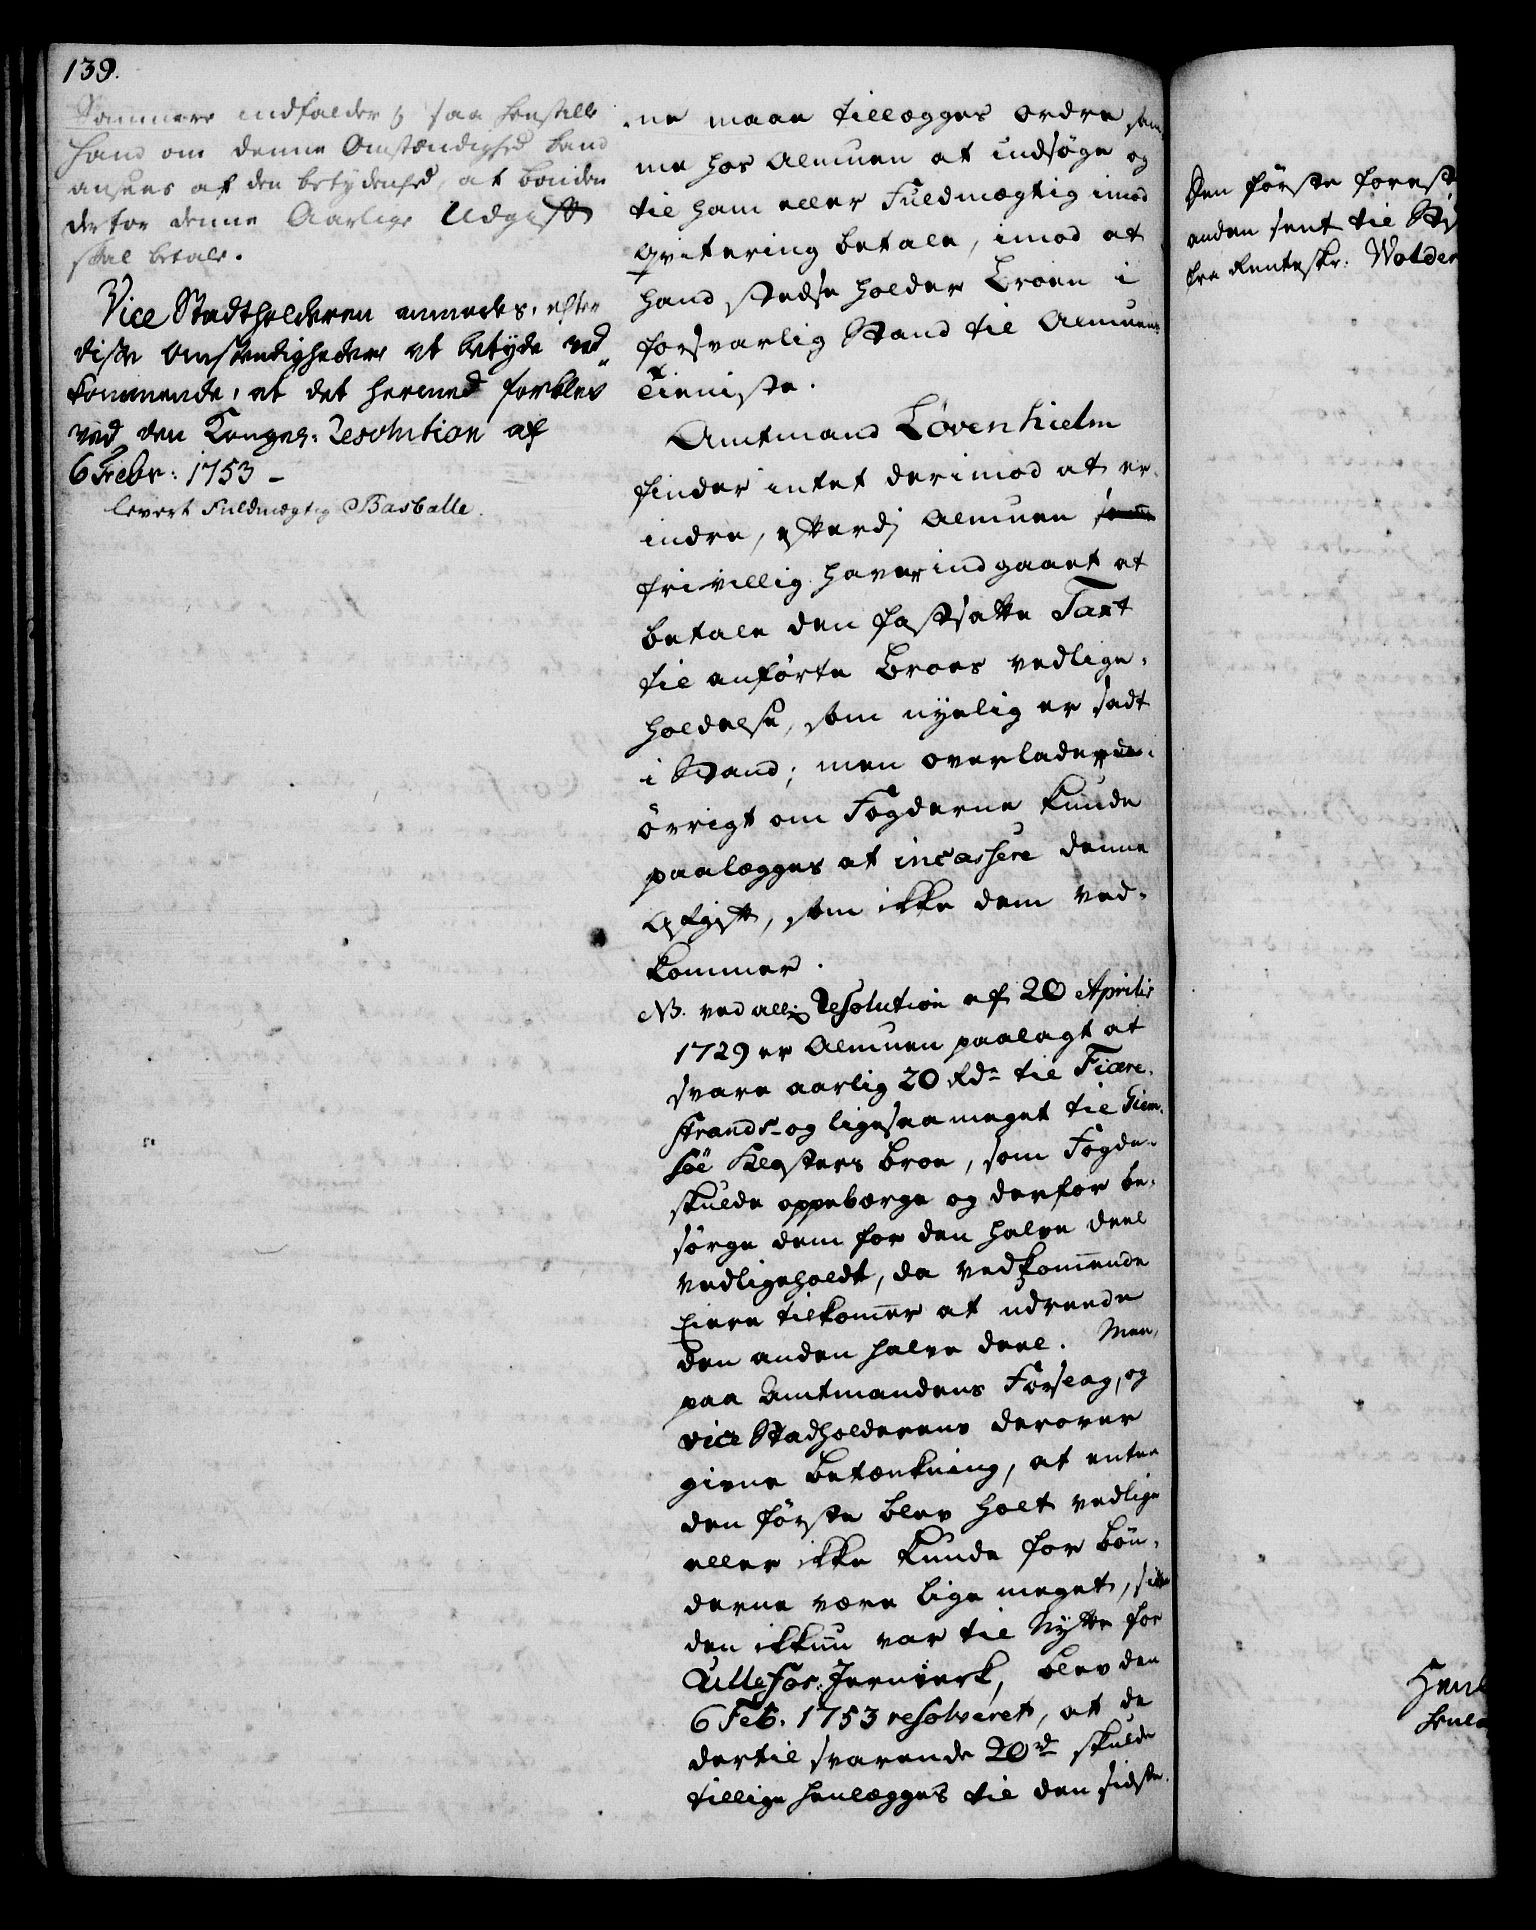 139.
Sommere indfalder, saa henstille
hand om denne Omstændighed kand
ansees af den betydenhed, at bonden
derfor denne Aarlige Udgift
skal betale.
Vice Stadtholderen anmodes, efter
disse Omstændigheder at betyde ved-
kommende, at det hermed forblev
ved den Kongel: Resolution af
6 Febr: 1753 -
levert Fuldmægtig Basballe.
ne maae tillægges ordre sam-
me hos Almuen at indsøge og
til ham eller Fuldmægtig imod
Qvitering betale, imod at
hand stedse holder Broen i
forsvarlig Stand til Almuens
Tieniste.
Amtmand Løvenhielm
finder intet derimod at er-
indre, efterdj Almuen
frivillig haver indgaaet at
betale den fastsatte Taxt
til anførte Broes vedlige-
holdelse, som nyelig er sadt
i Stand; men overlader
øvrigt om Fogderne kunde
paalægges at incassere denne
Afgift, som ikke dem ved-
kommer.
NB. ved all: Resolution af 20 Aprilis
1729 er Almuen paalagt at
svare aarlig 20 Rdr til Fiære-
strands- og ligesaa meget til Giem-
søe Klosters broe, som Fogden
skulde oppebærge og derfor be-
sørge dem for den halve deel
vedligeholdt, da vedkommende
Eiere tilkommer at udreede
den anden halve deel. Men
paa Amtmandens Forslag, og
vice Stadholderens derover
givne betænkning, at enten
den første blev holt vedlige
eller ikke kunde for bøn-
derne være lige meget, siden
den ikkun var til Nytte for
Ullefos Jernverk, blev den
6 Feb. 1753 resolveret, at de
dertil svarende 20 rd skulde
tillige henlægges til den sidste.
Den første forest
anden sent til St
fra Renteskr: Wolder